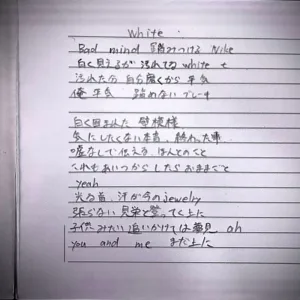 White
Bad mind 踏みつける Nike
白く見えるが 汚れてる white t
汚れた分 自分磨くから 平気
俺 平気 踏めない ブレーキ
白く囲まれた 壁模様
気にしたくない 本音、終わった事
嘘なしで伝える ほんとのこと
これもあいつから したら おままごと
yeah
光る首、汗が今のjewelry
張らない 見栄と 登ってく上に
子供みたい追いかけては夢見 oh
you and me まだ上に